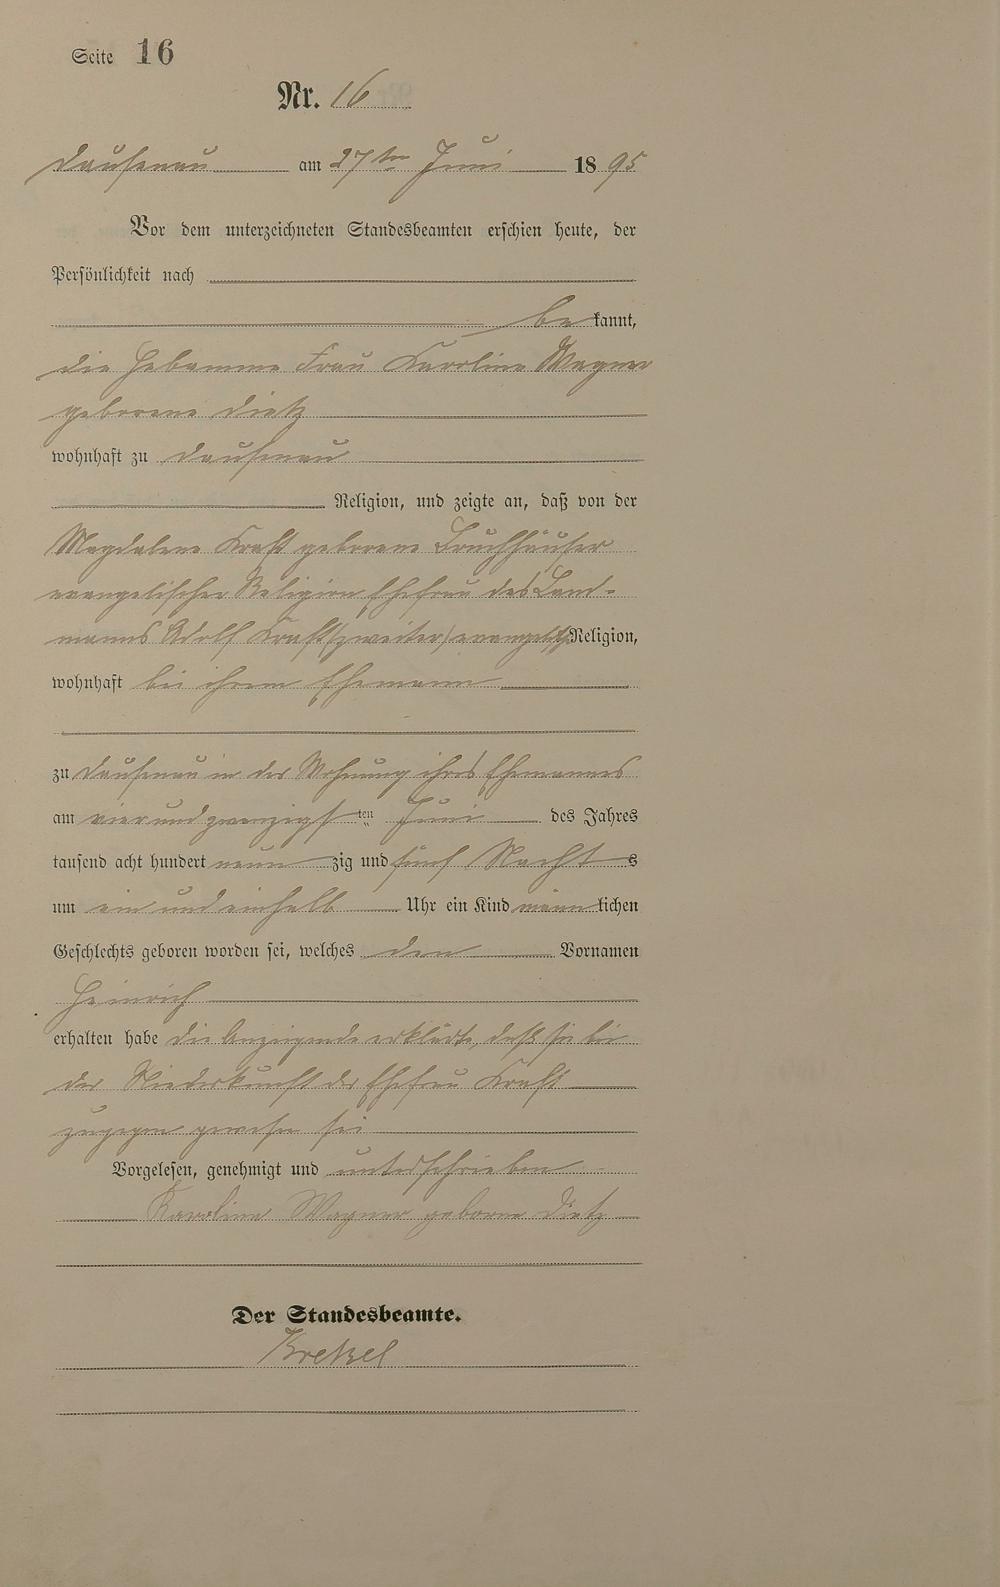 Seite 16
Nr. 16
Dausenau am 27ten Juni 1895
Vor dem unterzeichneten Standesbeamten erschien heute, der
Persönlichkeit nach
bekannt,
die Hebamme Frau Karoline Wagner
geborene Dietz
wohnhaft zu Dausenau
Religion, und zeigte an, daß von der
Magdalene Kraft geborene Bruchhäuser
evangelischer Religion Ehefrau des Land-
manns Adolf Kraft (zweiter) evangelisch Religion,
wohnhaft bei ihrem Ehemann
zu Dausenau in der Wohnung ihres Ehemannes
am vierundzwanzigsten Juni des Jahres
tausend acht hundert neunzig und fünf Nachts
um ein und einhalb Uhr ein Kind männlichen
Geschlechts geboren worden sei, welches den Vornamen
Heinrich
erhalten habe die Anzeigende erklärte, daß sie bei
der Niederkunft der Ehefrau Kraft
zugegen gewesen sei
Vorgelesen, genehmigt und unterschrieben
Karoline Wagner geborne Dietz
Der Standesbeamte.